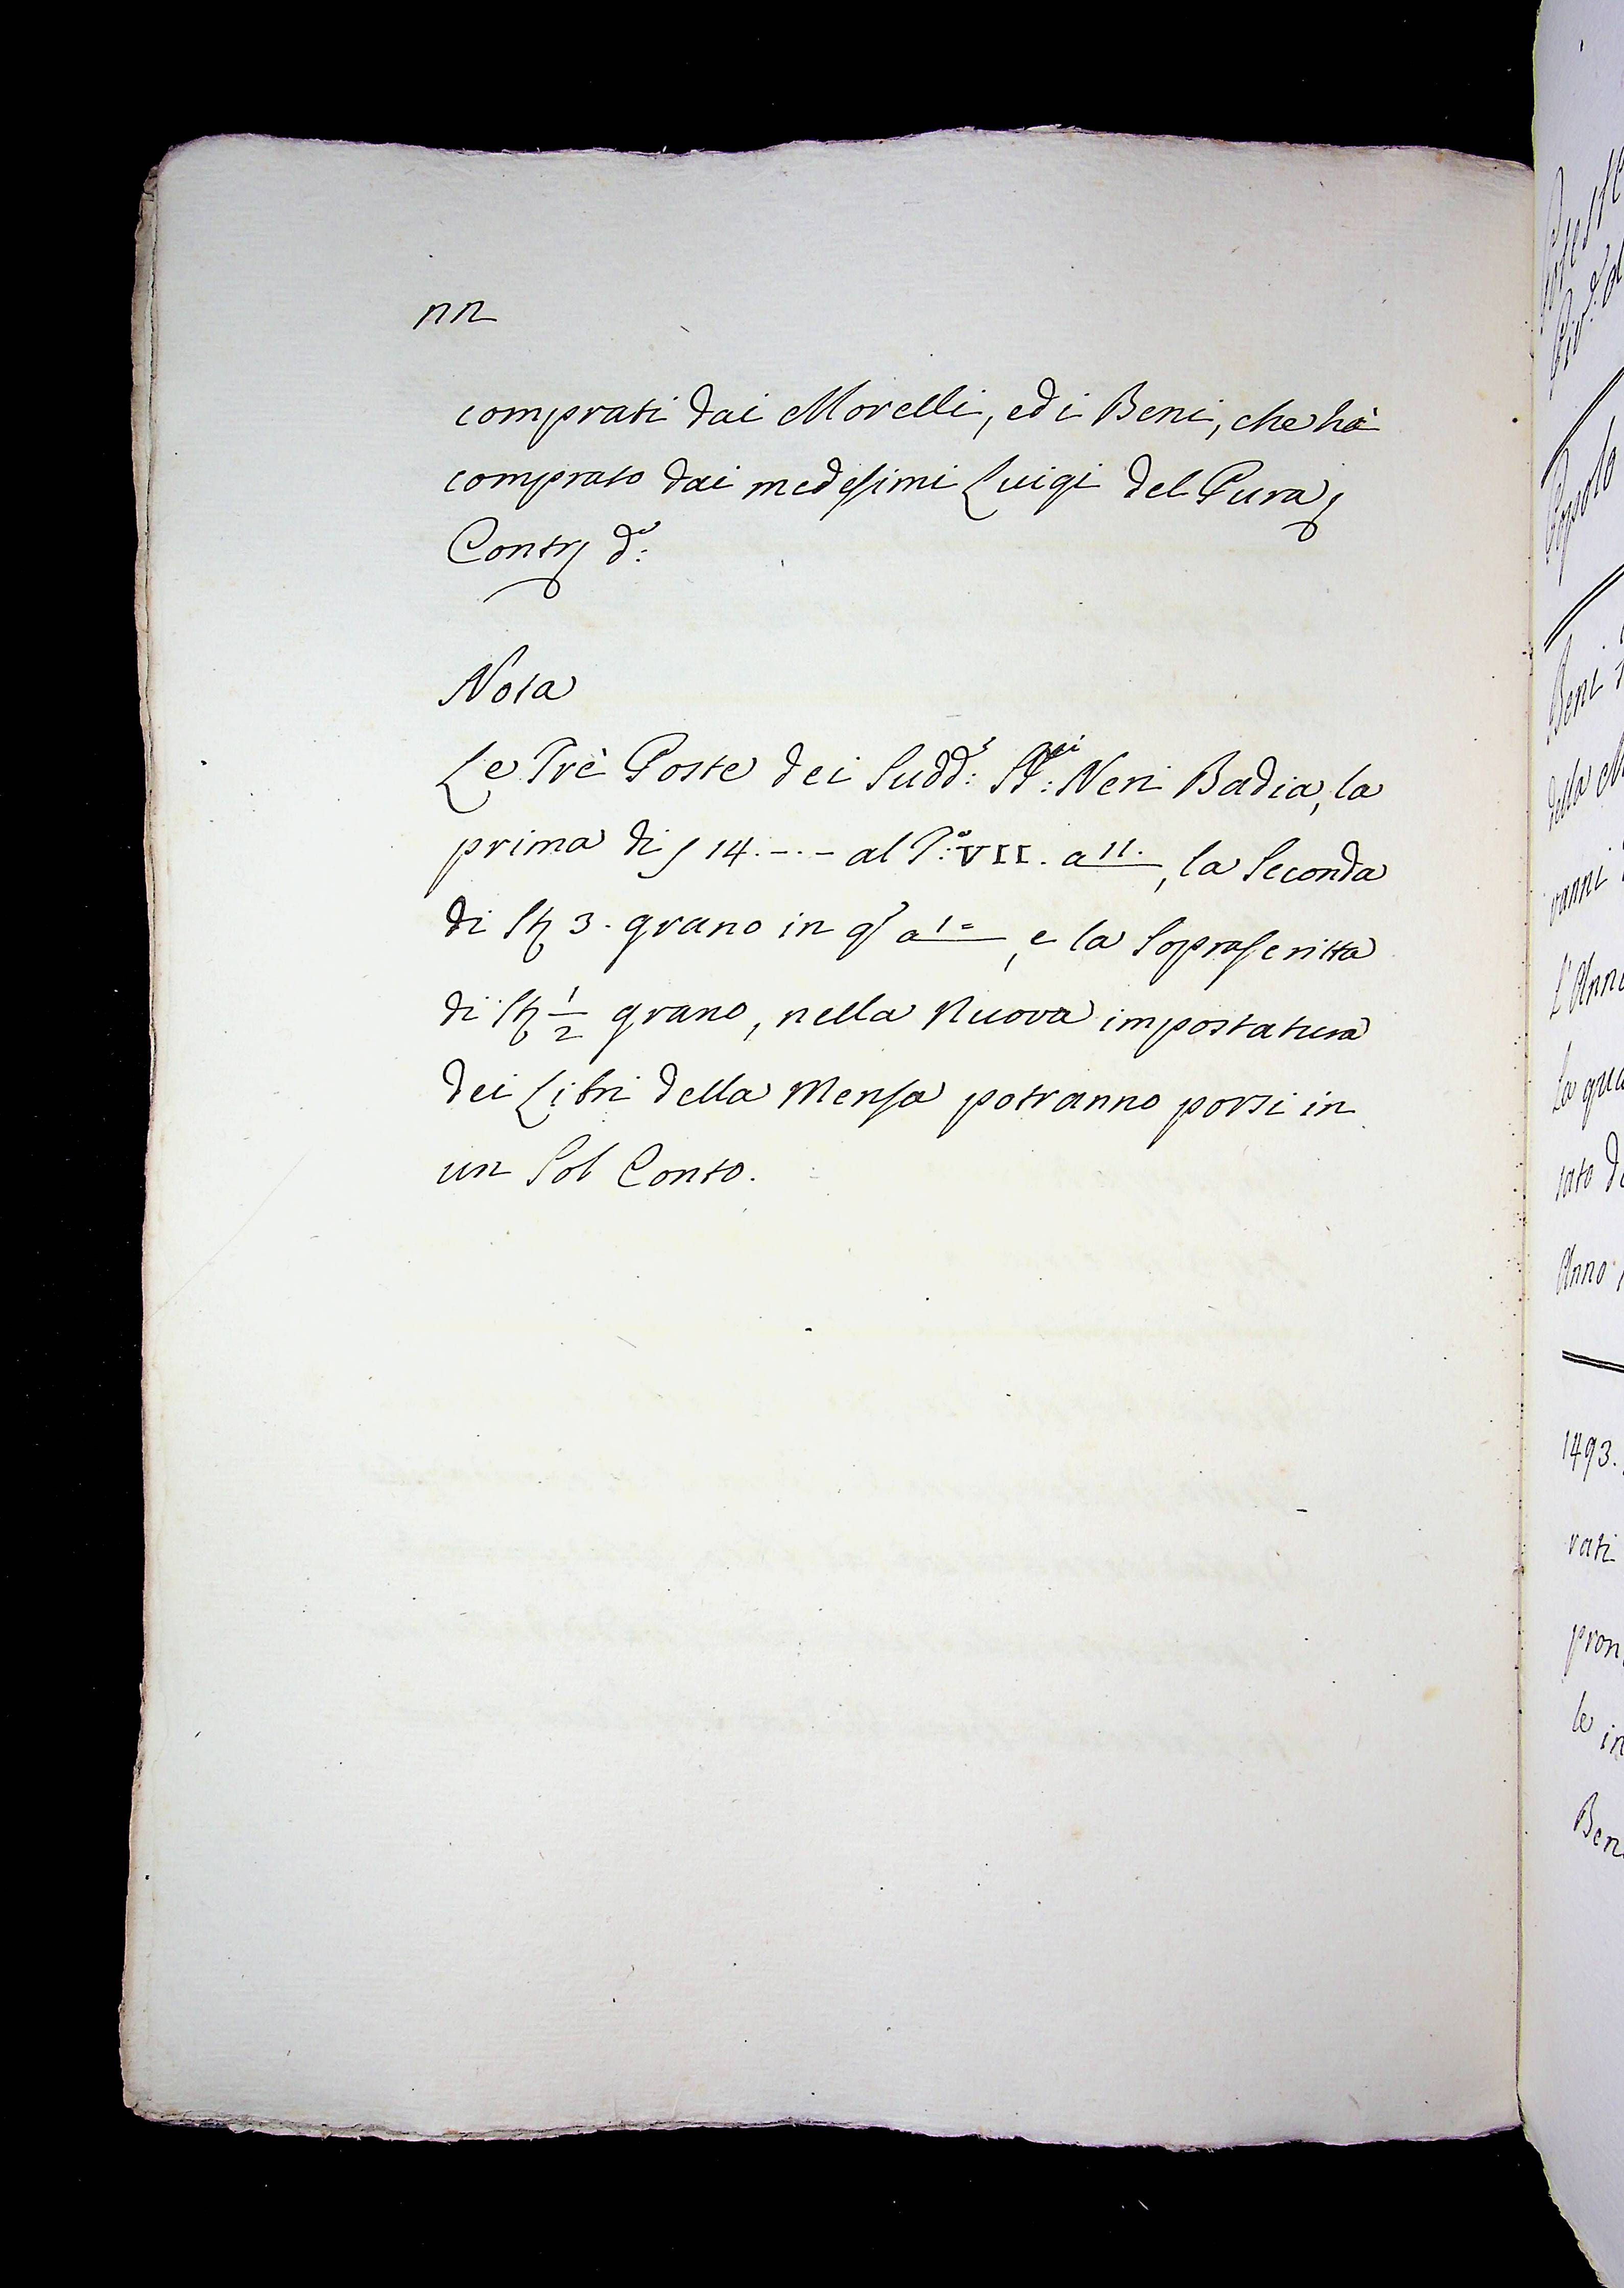 nn
comprati dai Morelli, ed i Beni, che hà
comprato dai medesimi Luigi del Pura,
Contr. d.º:
Nota
Le Trè Poste dei Sudd.ⁱ: SS.ʳⁱ: Neri Badia, la
prima di ʃ 14.-.- al T.º: VII. a 11. , la Seconda
di St. 3. grano in qº a 1= , e la Soprascritta
di St. 1/2 grano, nella Nuova impostatura
dei Libri della Mensa potranno porsi in
un Sol Conto.
Popolo
Beni
della
vanni
L'Anno
La qua
Anno
1493.
vati
pron
le in
Ben